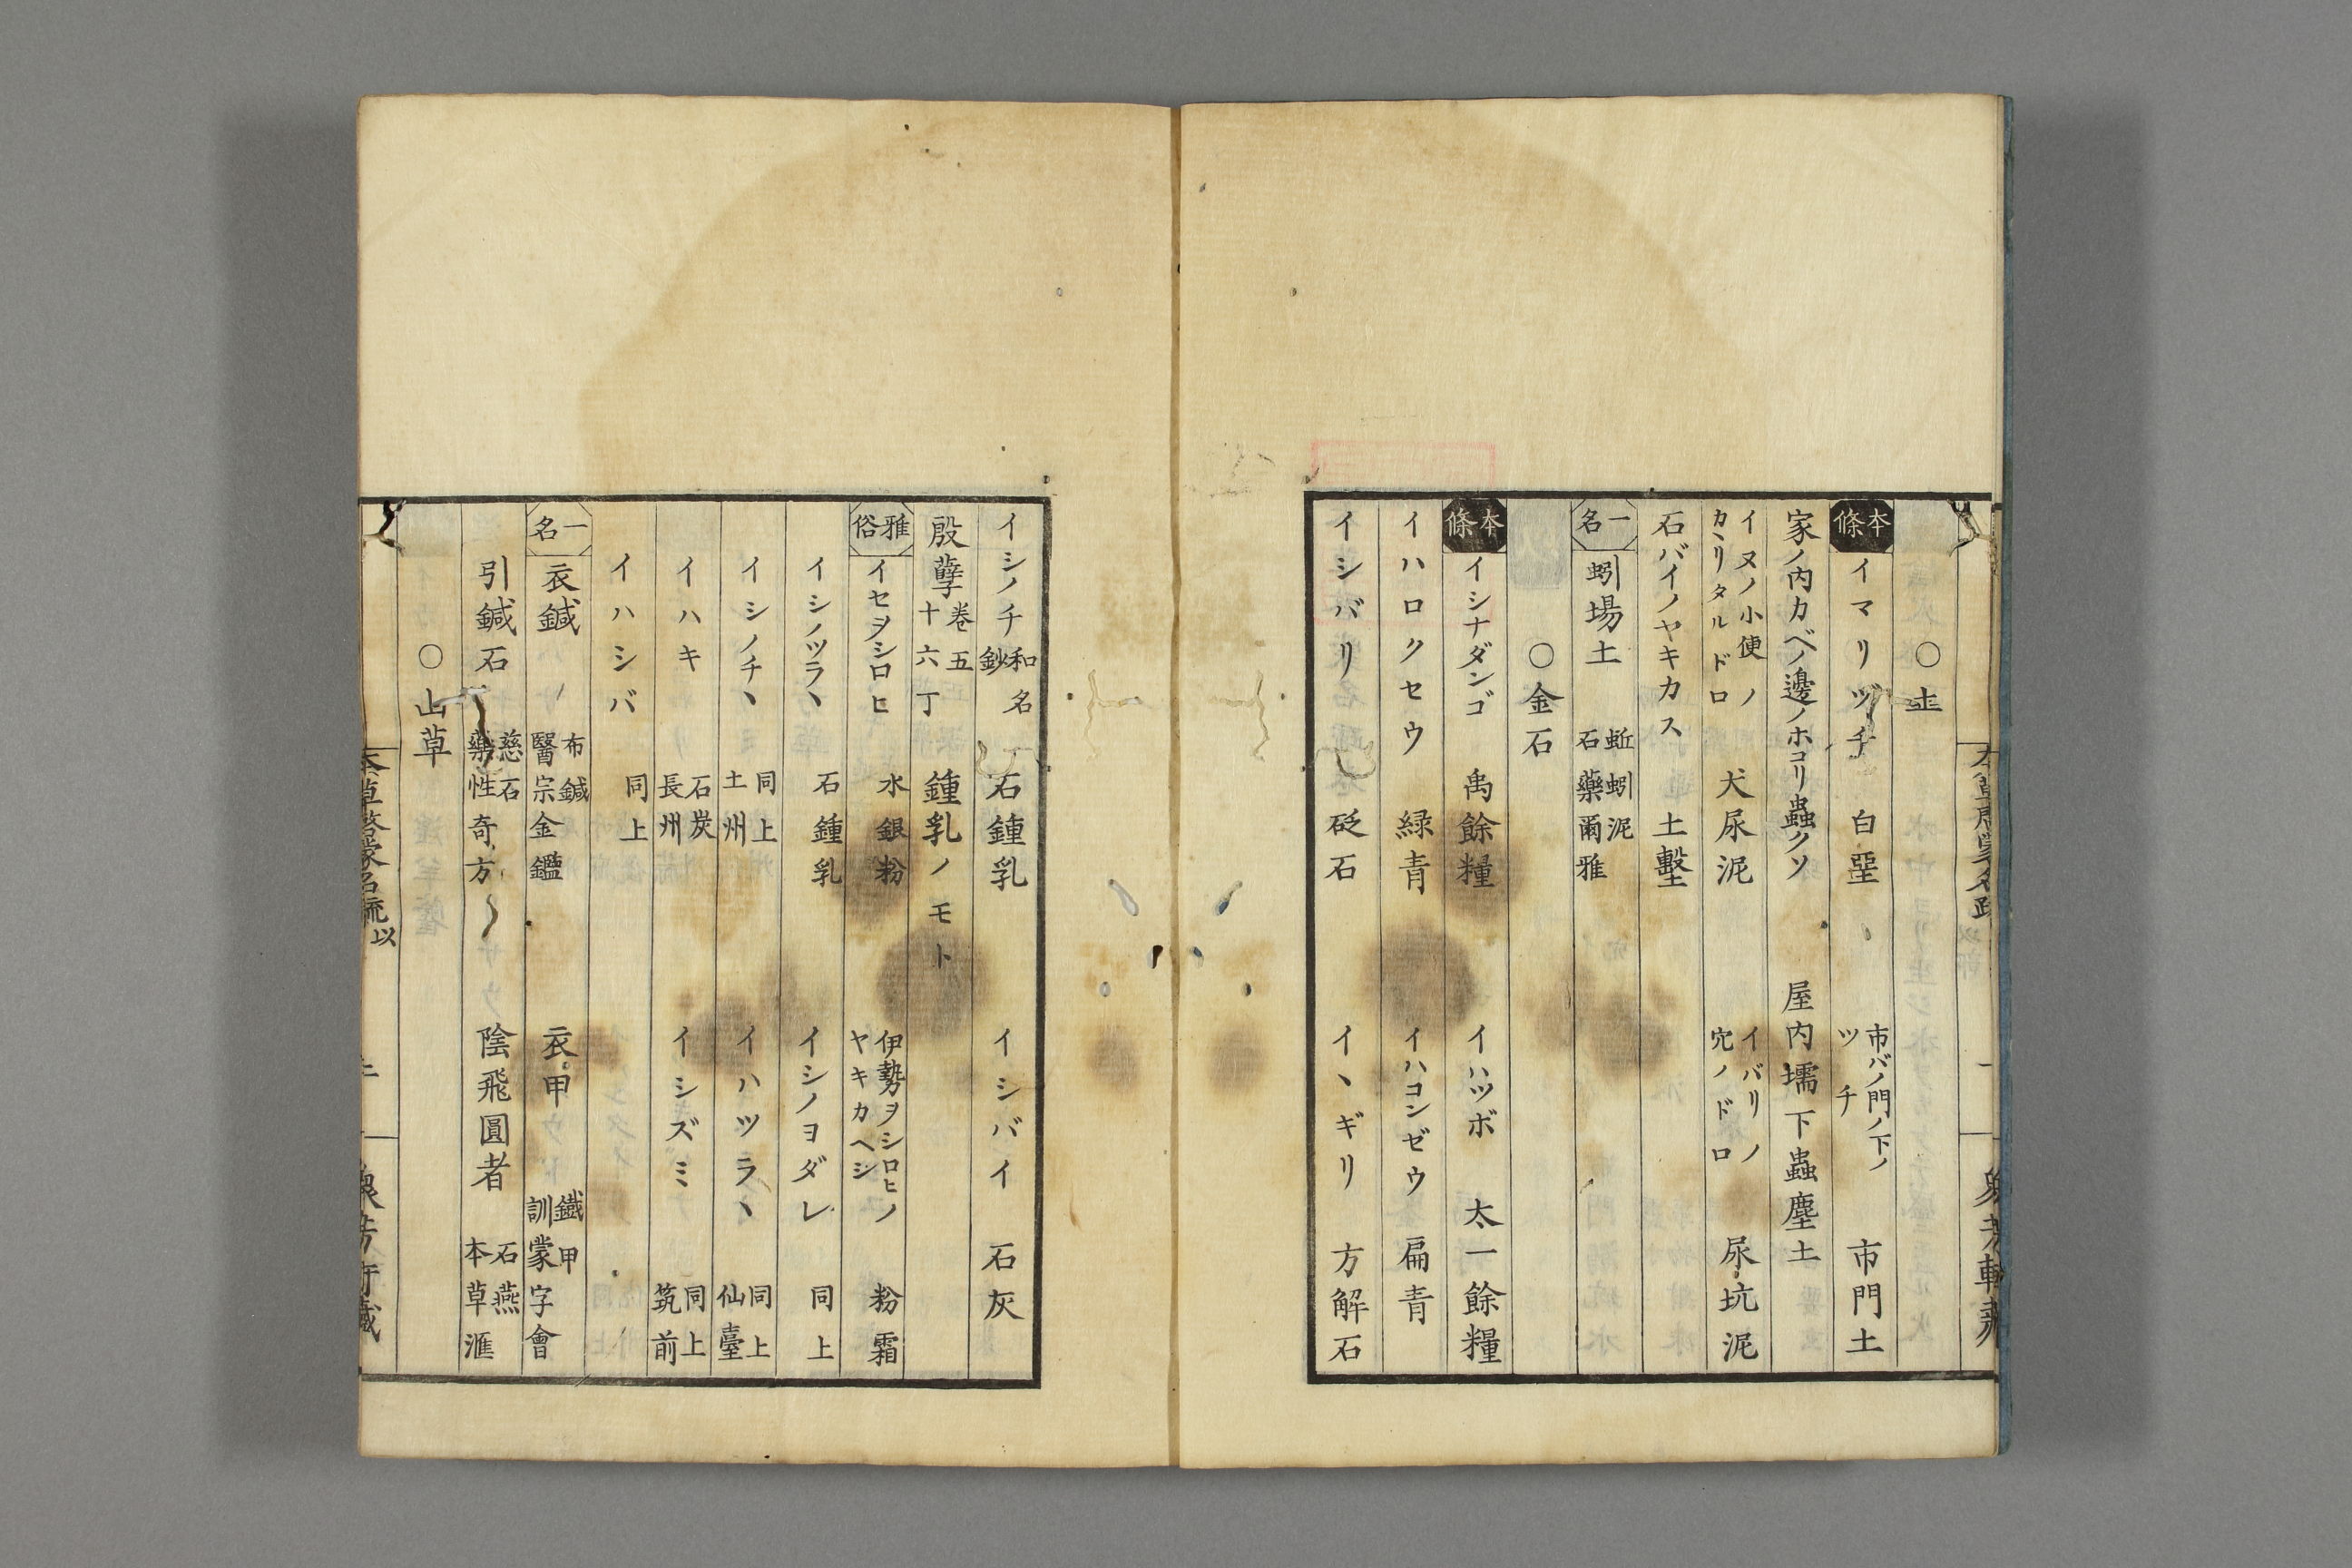 ○土
本條 イマリヅチ 白堊 市バノ門ノ下ノツチ 市門土
家ノ内カベノ邊ノホコリ蟲クソ 屋内壖下蟲塵土
イヌノ小便ノカヽリタルドロ 犬尿泥 イバリノ穴ノドロ 尿坑泥
石バイノヤキカス 土墼
一名 蚓場土 蚯蚓泥 石藥爾雅
○金石
本條 イシナダンゴ 禹餘糧 イハツボ 太一餘糧
イハロクセウ 緑青 イハコンゼウ 扁青
イシバリ 砭石 イヽギリ 方解石
イシノチ 和名鈔 石鍾乳 イシバイ 石灰
殷孽 卷五十六丁 鍾乳ノモト
雅俗 イセヲシロヒ 水銀粉 伊勢ヲシロヒノヤキカヘシ 粉霜
イシノツラヽ 石鍾乳 イシノヨダレ 同上
イシノチヽ 同上土州 イハツラヽ 同上仙臺
イハキ 石炭長州 イシズミ 同上筑前
イハシバ 同上
一名 衣鍼 布鍼 醫宗金鑑 衣甲 鐵甲 訓蒙字會
引鍼石 慈石 藥性奇方 陰飛圓者 石燕 本草滙
○山草
本草啓蒙名疏 以